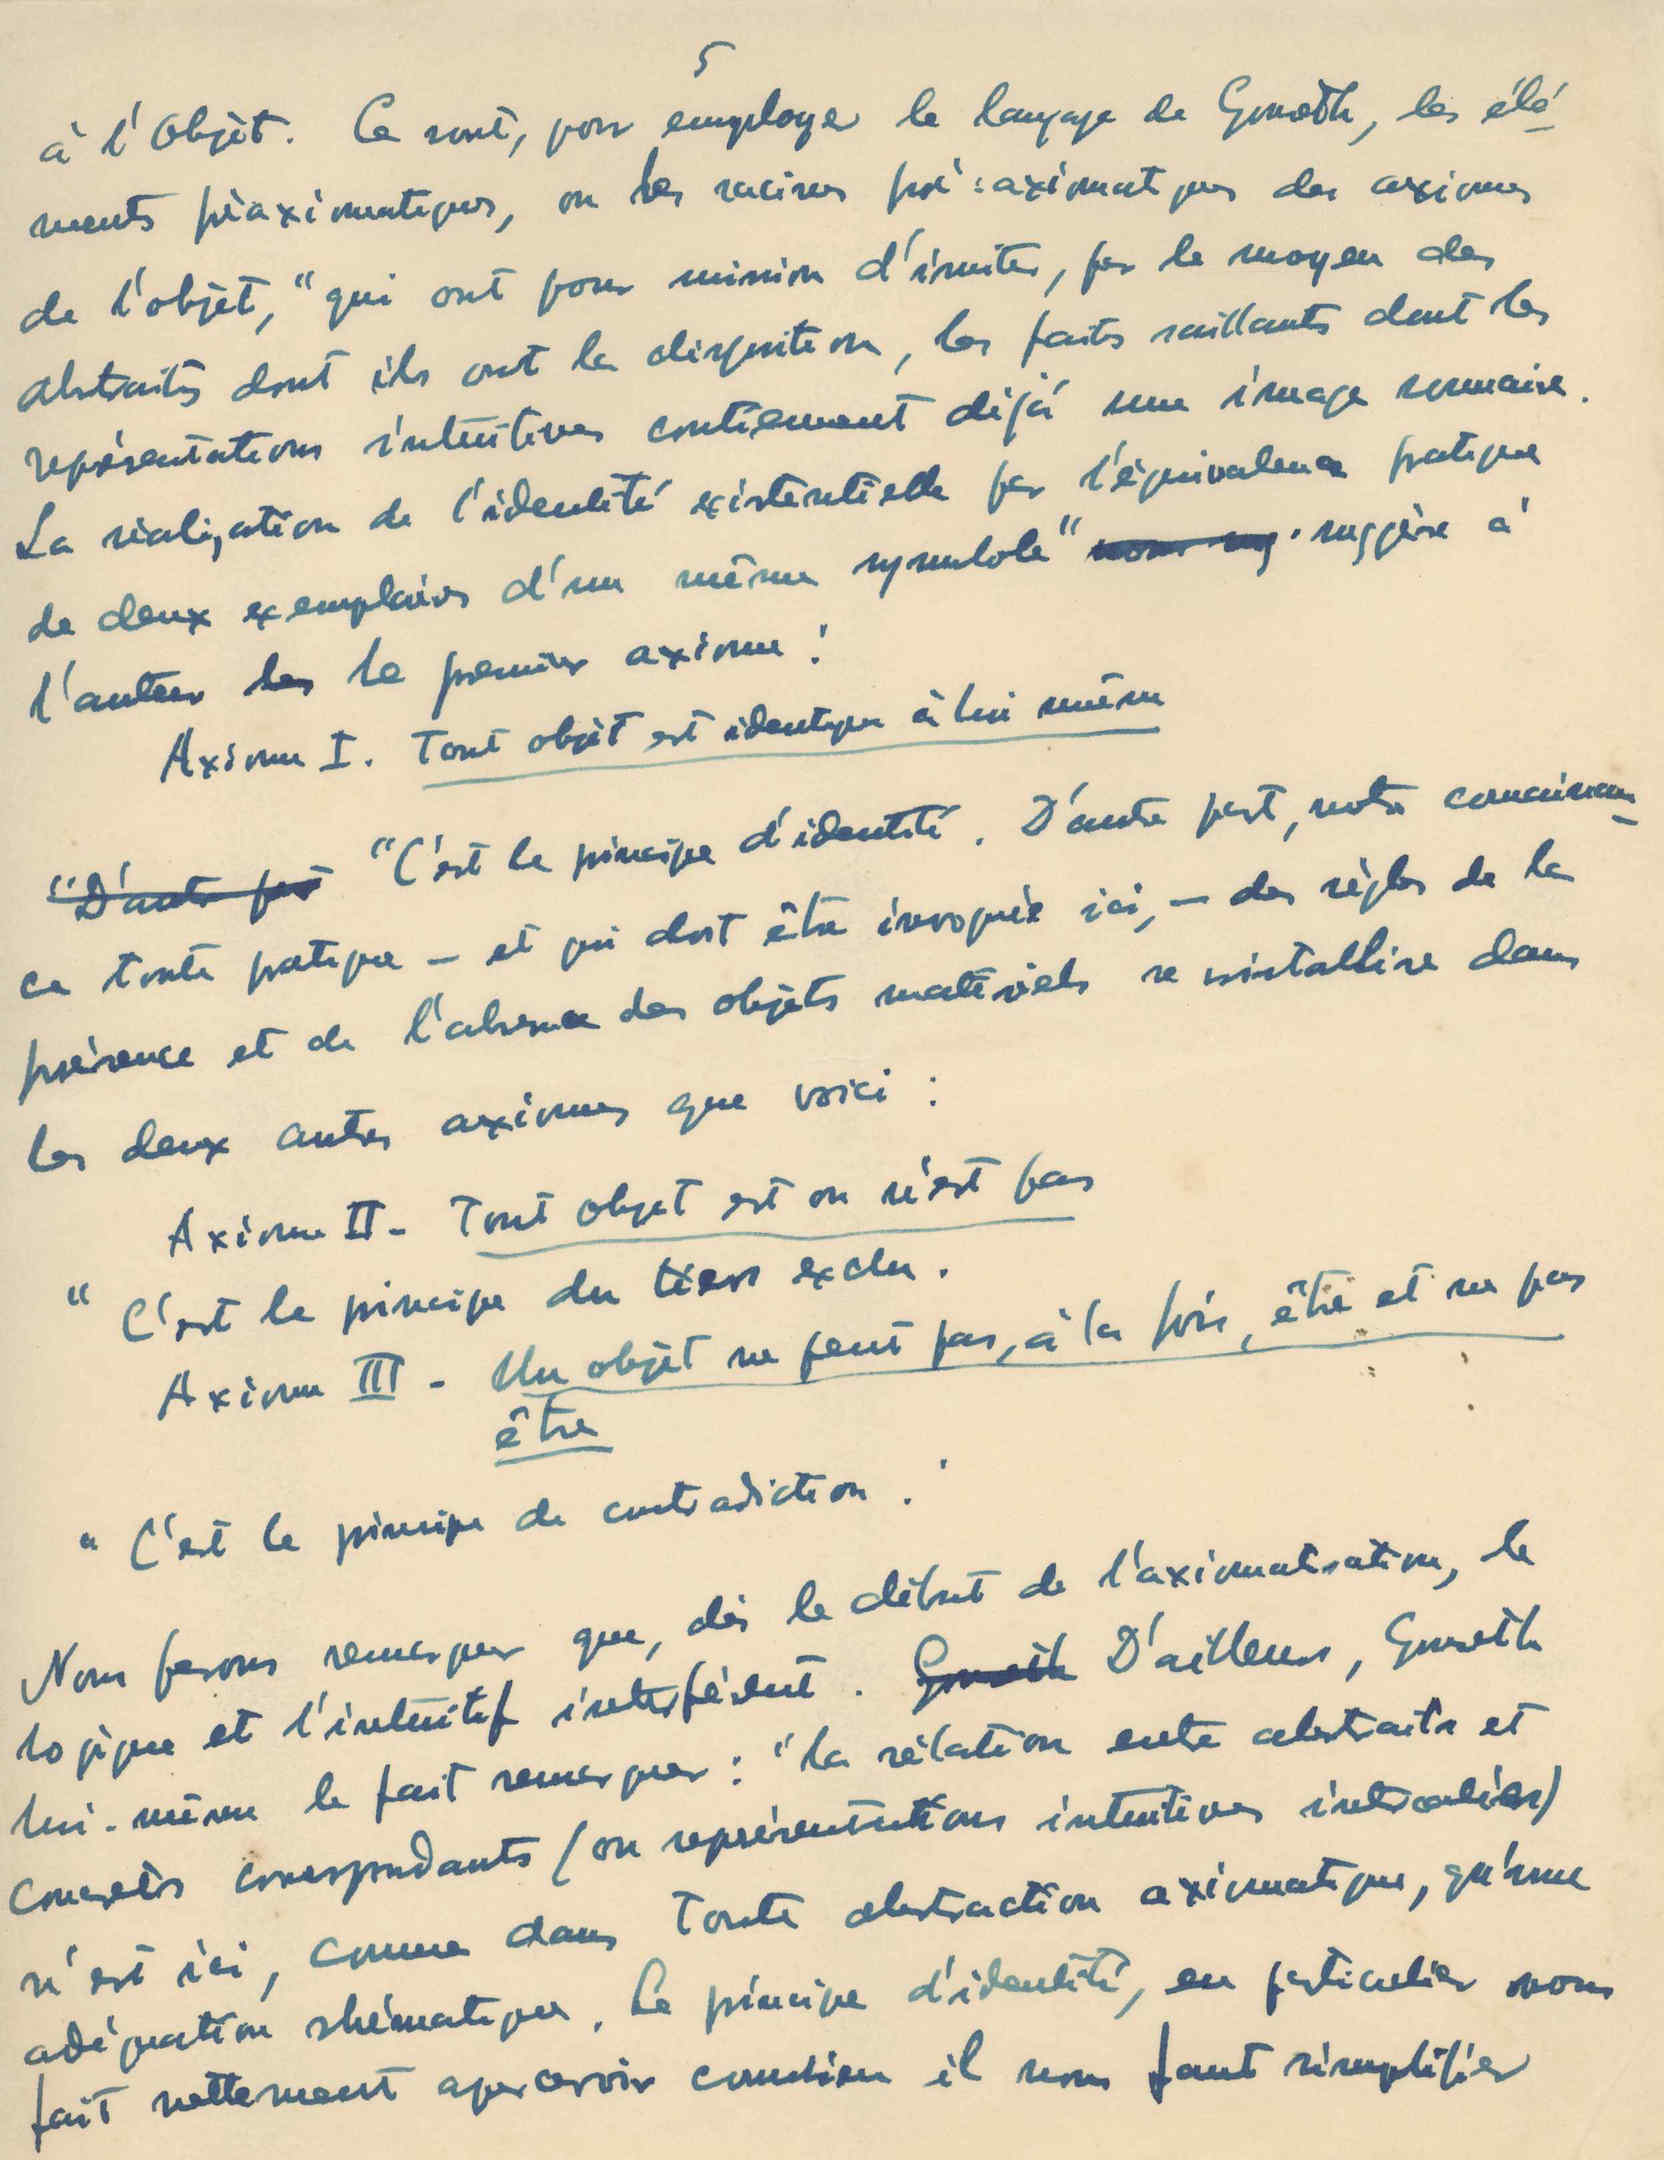 5
à l'Objèt. Ce sont, pour employer le langage de Gonseth, les élé-
ments préaxiomatiques, ou les racines pré-axiomatiques des axiomes
de l'objèt, "qui ont pour mission d'imiter, par le moyen des
abstraits dont ils ont la disposition, les faits saillants dont les
représentations intuitives contiennent déjà une image sommaire.
La réalisation de l'identité existentielle par l'équivalence pratique
de deux exemplaires d'un même symbole" nous sug suggère à
l'auteur les le premier axiome :
Axiome I. Tout objèt est identique à lui même
"D'autre part "C'est le principe d'identité. D'autre part, notre connaissan-
ce toute pratique – et qui doit être invoquée ici, – des règles de la
présence et de l'absence des objèts matériels se cristallise dans
les deux autres axiomes que voici :
Axiome II - Tout objet est ou n'est pas
" C'est le principe du tiers exclu.
Axiome III - Un objèt ne peut pas, à la fois, être et ne pas
être
" C'est le principe de contradiction.
Nous ferons remarquer que, dès le début de l'axiomatisation, le
logique et l'intuitif interfèrent. Gonseth D'ailleurs, Gonseth
lui-même le fait remarquer : "la rélation entre abstraits et
concrèts correspondants (ou représentations intuitives intercalées)
n'est ici, comme dans toute abstraction axiomatique, qu'une
adéquation shématique. Le principe d'identité, en particulier nous
fait nettement apercevoir combien il nous faut simplifier